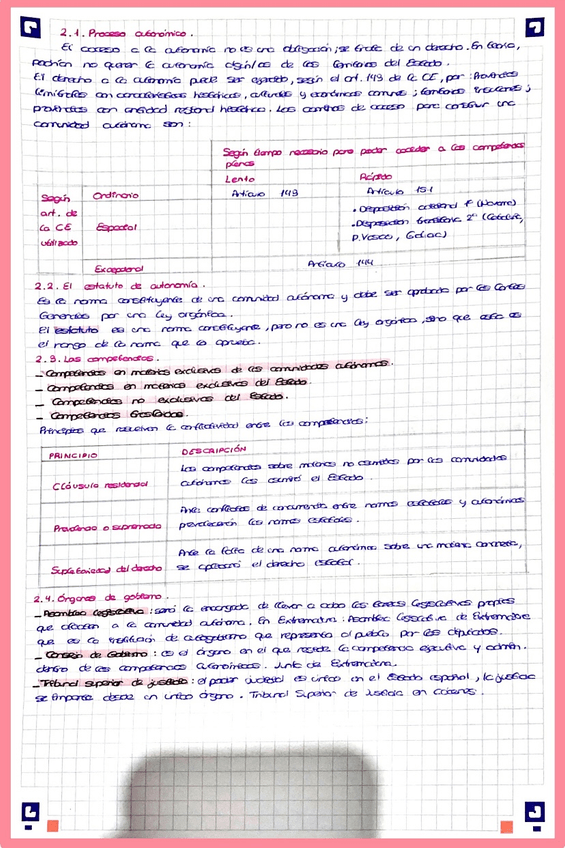 2.1. Proceso autonómico.
El acceso a la autonomía no es una obligación; se trata de un derecho. En teoría,
podrían no querer la autonomía algún/os de los territorios del Estado.
El derecho a la autonomía puede ser ejercido, según el art. 143 de la CE, por: Provincias
limítrofes con características históricas, culturales y económicas comunes; territorios insulares;
provincias con entidad regional histórica. Los caminos de acceso para constituir una
comunidad autónoma son:
Según tiempo necesario para poder acceder a las competencias
plenas
Lento Rápido
Según art. de la CE utilizado
Ordinario Artículo 143 Artículo 151
Especial
• Disposición adicional 1ª (Navarra)
• Disposición transitoria 2ª (Cataluña,
P. Vasco, Galicia)
Excepcional Artículo 144
2.2. El estatuto de autonomía.
Es la norma constituyente de una comunidad autónoma y debe ser aprobada por las Cortes
Generales por una ley orgánica.
El estatuto es una norma constituyente, pero no es una ley orgánica, sino que este es
el rango de la norma que la aprueba.
2.3. Las competencias.
- Competencias en materias exclusivas de las comunidades autónomas.
- Competencias en materias exclusivas del Estado.
- Competencias no exclusivas del Estado.
- Competencias
Principios que resuelven la conflictividad entre las competencias:
PRINCIPIO DESCRIPCIÓN
Cláusula residencial
Las competencias sobre materias no asumidas por las comunidades
autónomas las asumirá el Estado.
Prevalencia o supremacía
Ante conflictos de concurrencia entre normas estatales y autonómicas
prevalecerán las normas estatales.
Supletoriedad del derecho
Ante la falta de una norma autonómica sobre una materia concreta,
se aplicará el derecho estatal.
2.4. Órganos de gobierno.
- Asamblea legislativa: será la encargada de llevar a cabo las tareas legislativas propias
que afectan a la comunidad autónoma. En Extremadura: Asamblea Legislativa de Extremadura
que es la institución de autogobierno que representa al pueblo por los diputados.
- Consejo de Gobierno: es el órgano en el que reside la competencia ejecutiva y admin.
dentro de las competencias autonómicas. Junta de Extremadura.
- Tribunal superior de justicia: el poder judicial es único en el Estado español, la justicia
se imparte desde un único órgano. Tribunal Superior de Justicia en Cáceres.